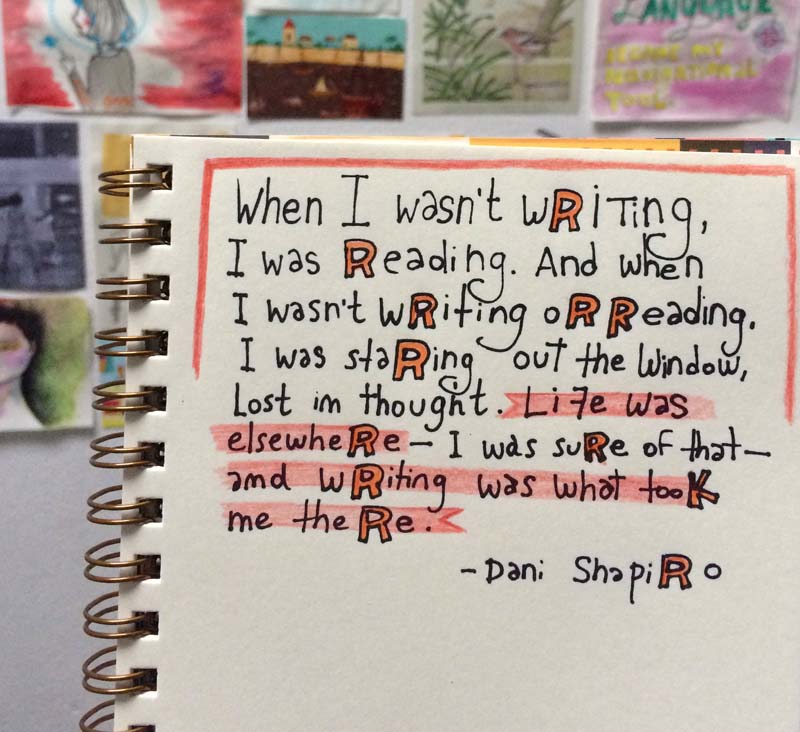 LANGUAGE
BECAME MY
NAVIGATIONAL
TOOL.
When I wasn't wRiTing,
I was Reading. And when
I wasn't wRiting oR Reading.
I was staRing out the window,
Lost in thought. Life was
elsewheRe – I was suRe of that –
and wRiting was what tooK
me theRe.
- Dani ShapiRo